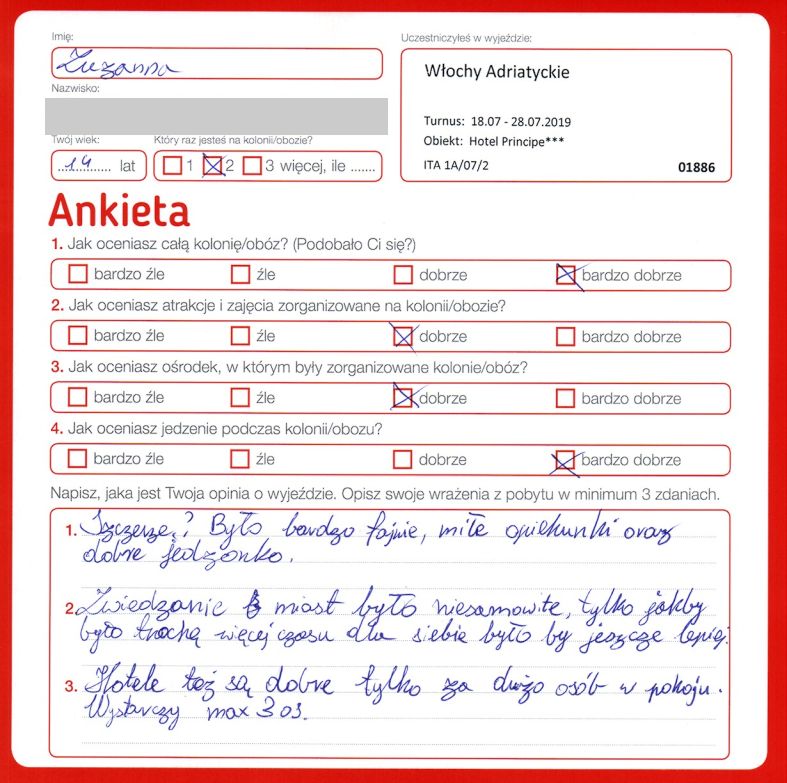 Imię:
Zuzanna
Nazwisko:
Twój wiek:
14 lat
Który raz jesteś na kolonii/obozie?
1 2 3 więcej, ile .......
Uczestniczyłeś w wyjeździe:
Włochy Adriatyckie
Turnus: 18.07 - 28.07.2019
Obiekt: Hotel Principe***
ITA 1A/07/2 01886
Ankieta
1. Jak oceniasz całą kolonię/obóz? (Podobało Ci się?)
bardzo źle źle dobrze bardzo dobrze
2. Jak oceniasz atrakcje i zajęcia zorganizowane na kolonii/obozie?
bardzo źle źle dobrze bardzo dobrze
3. Jak oceniasz ośrodek, w którym były zorganizowane kolonie/obóz?
bardzo źle źle dobrze bardzo dobrze
4. Jak oceniasz jedzenie podczas kolonii/obozu?
bardzo źle źle dobrze bardzo dobrze
Napisz, jaka jest Twoja opinia o wyjeździe. Opisz swoje wrażenia z pobytu w minimum 3 zdaniach.
1. Szczerze? Było bardzo fajnie, miłe opiekunki oraz
dobre jedzonko.
2. Zwiedzanie miast było niesamowite, tylko jakby
było trochę więcej czasu dla siebie było by jeszcze lepiej.
3. Hotele też są dobre tylko za dużo osób w pokoju.
Wystarczy max 3 os.